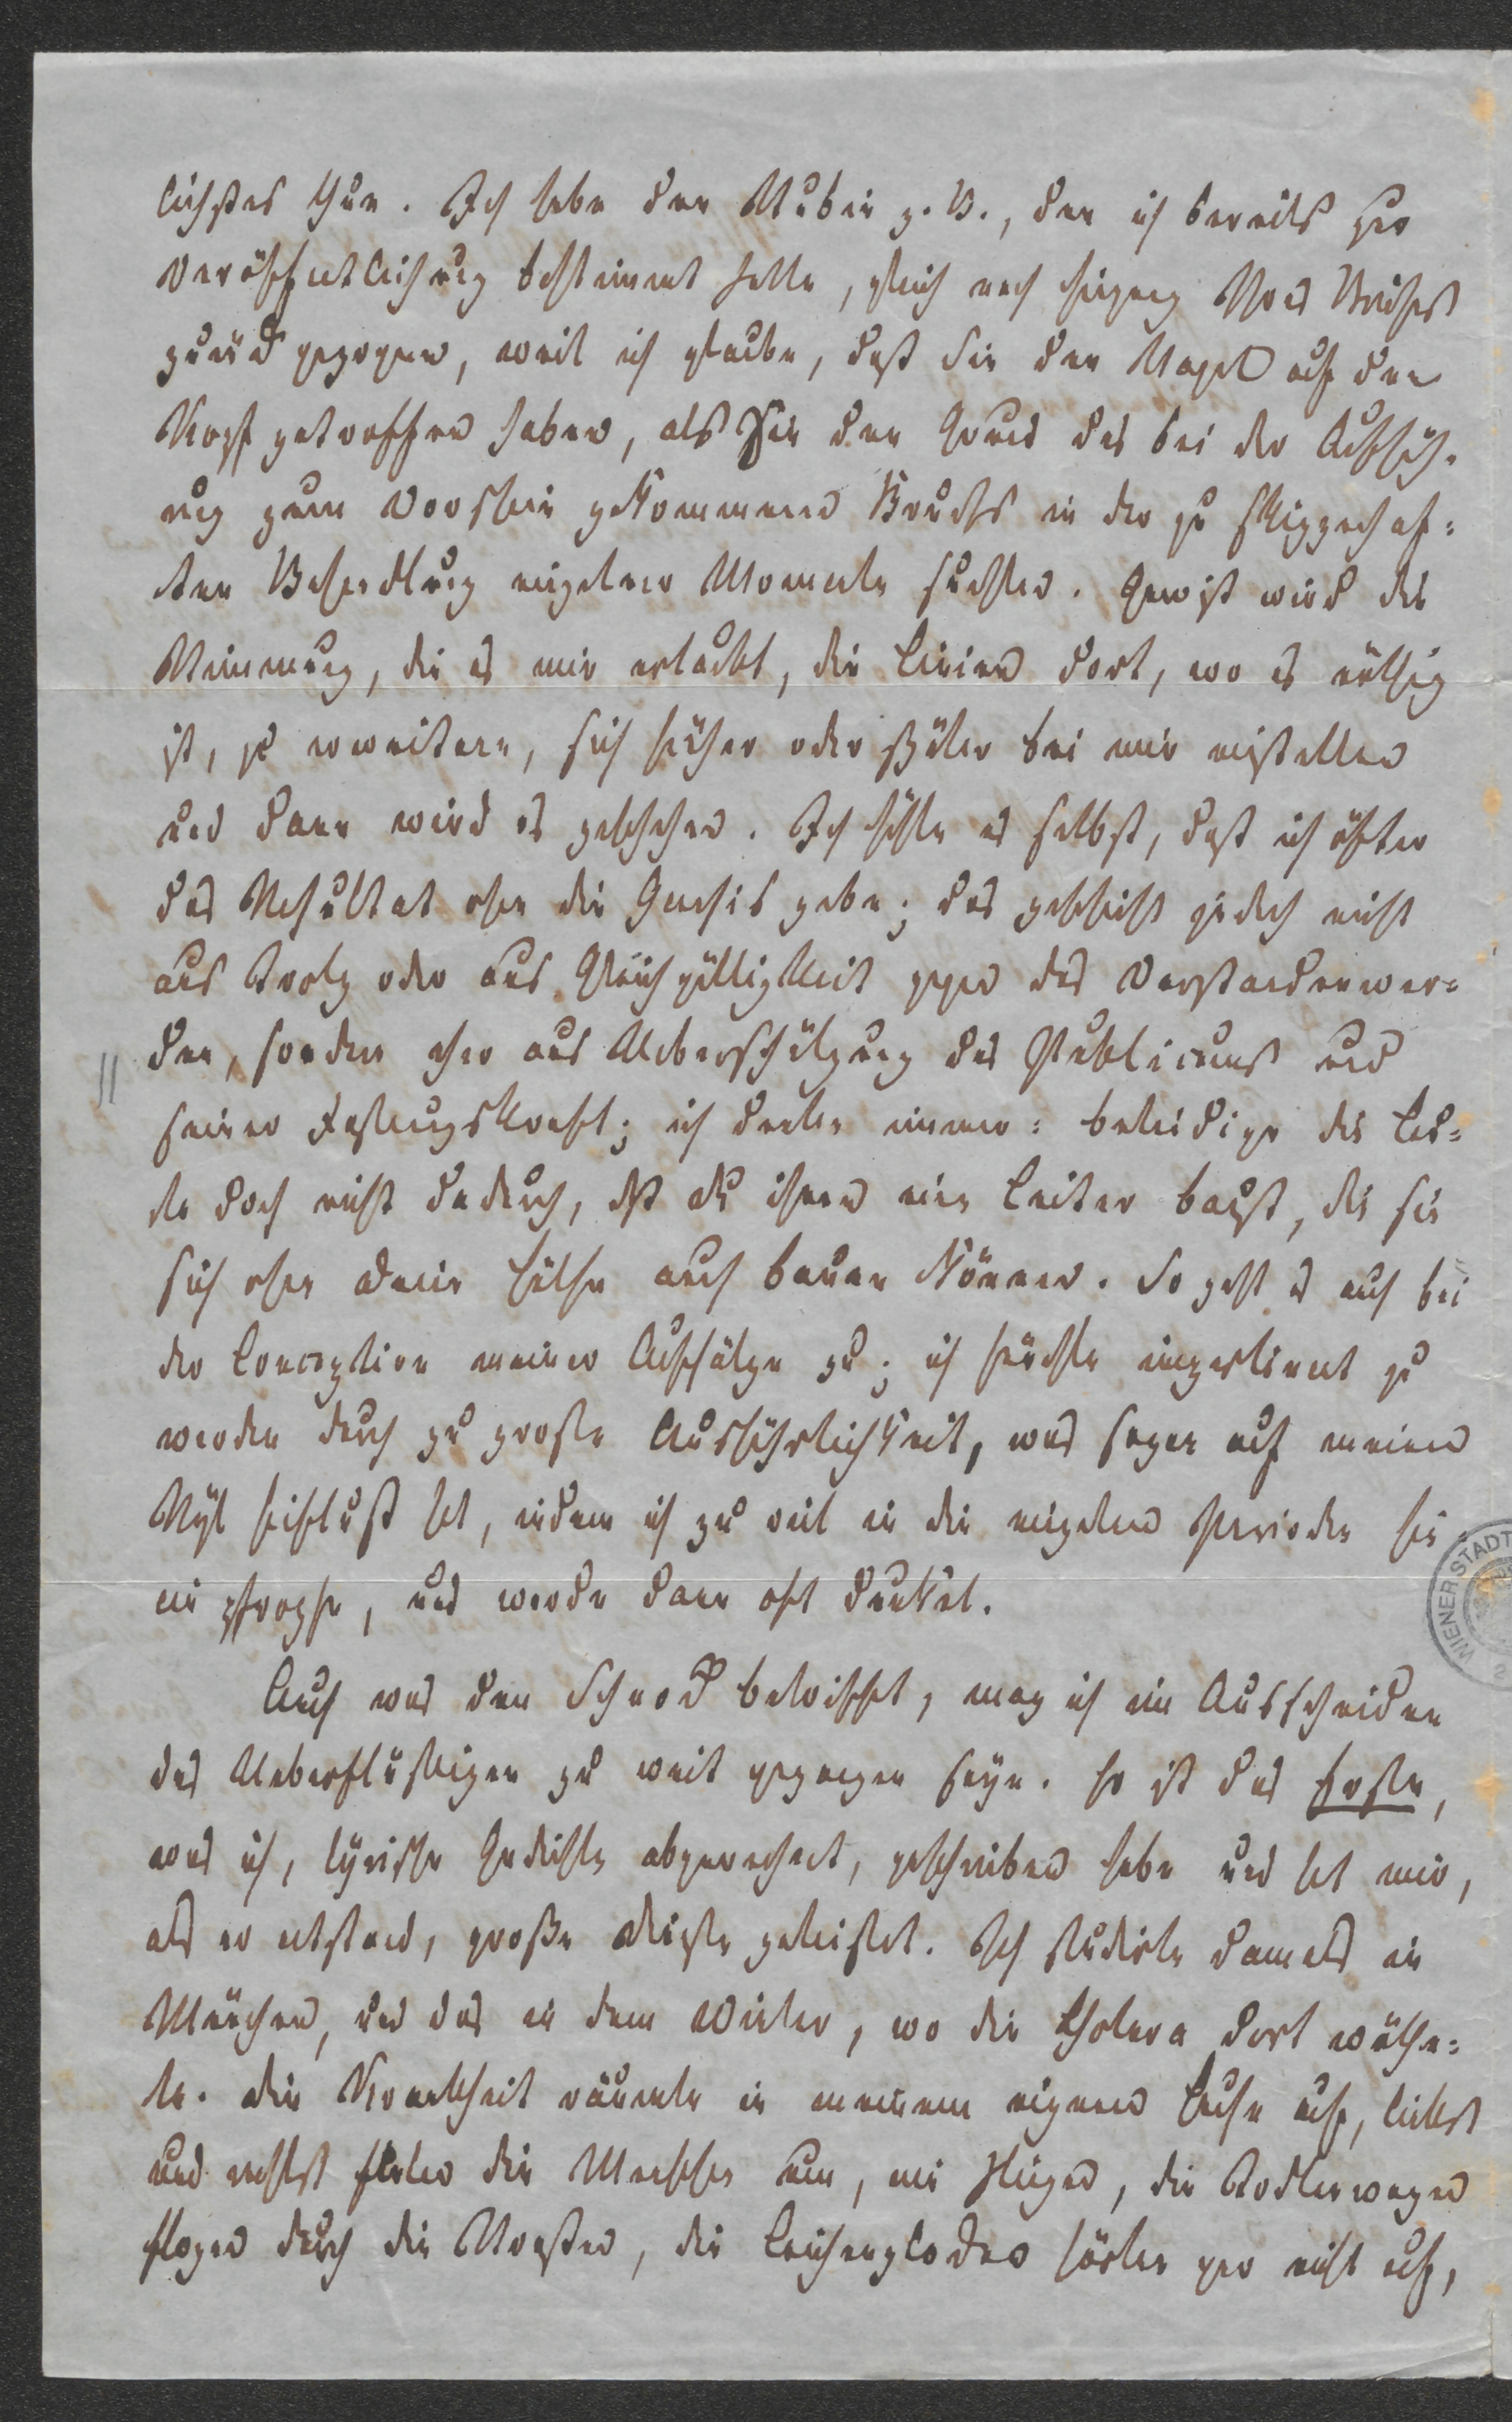 lichstes thun. Ich habe den Rubin z. B., den ich bereits zur
Veröffentlichung bestimmt hatte, gleich nach Eingang Ihres Briefes
zurück gezogen, weil ich glaube, daß Sie den Nagel auf den
Kopf getroffen haben, als Sie den Grund des bei der Auffüh-
rung zum Vorschein gekommenen Bruchs in der zu skizzenhaf-
ten Behandlung einzelner Momente suchten. Gewiß wird die
Stimmung, die es mir erlaubt, die Linien dort, wo es nöthig
ist, zu erweitern, sich früher oder später bei mir einstellen
und dann wird es geschehen. Ich fühle es selbst, daß ich öfter
das Resultat ohne die Genesis gebe; das geschieht jedoch nicht
aus Trotz oder aus Gleichgültigkeit gegen das Verstandenwer-
den, sondern eher aus Ueberschätzung des Publicums und
seiner Fassungskraft; ich denke immer: beleidige die Leu-
te doch nicht dadurch, daß du ihnen eine Leiter baust, die sie
sich ohne deine Hülfe auch bauen können. So geht es auch bei
der Conception meiner Aufsätze zu; ich fürchte impertinent zu
werden durch zu große Ausführlichkeit, was sogar auf meinen
Styl Einfluß hat, indem ich zu viel in die einzelnen Perioden hin-
ein pfropfe, und werde dann oft dunkel.
Auch was den Schnock betrifft, mag ich im Ausscheiden
des Ueberflüssigen zu weit gegangen seyn. Er ist das Erste,
was ich, lyrische Gedichte abgerechnet, geschrieben habe und hat mir,
als er entstand, große Dienste geleistet. Ich studirte damals in
München, und das in dem Winter, wo die Cholera dort wüthe-
te. Die Krankheit räumte in meinem eigenen Hause auf, links
und rechts fielen die Menschen um, wie Fliegen, die Todtenwagen
flogen durch die Straßen, die Leichenglocken hörten gar nicht auf,
WIENER STADT